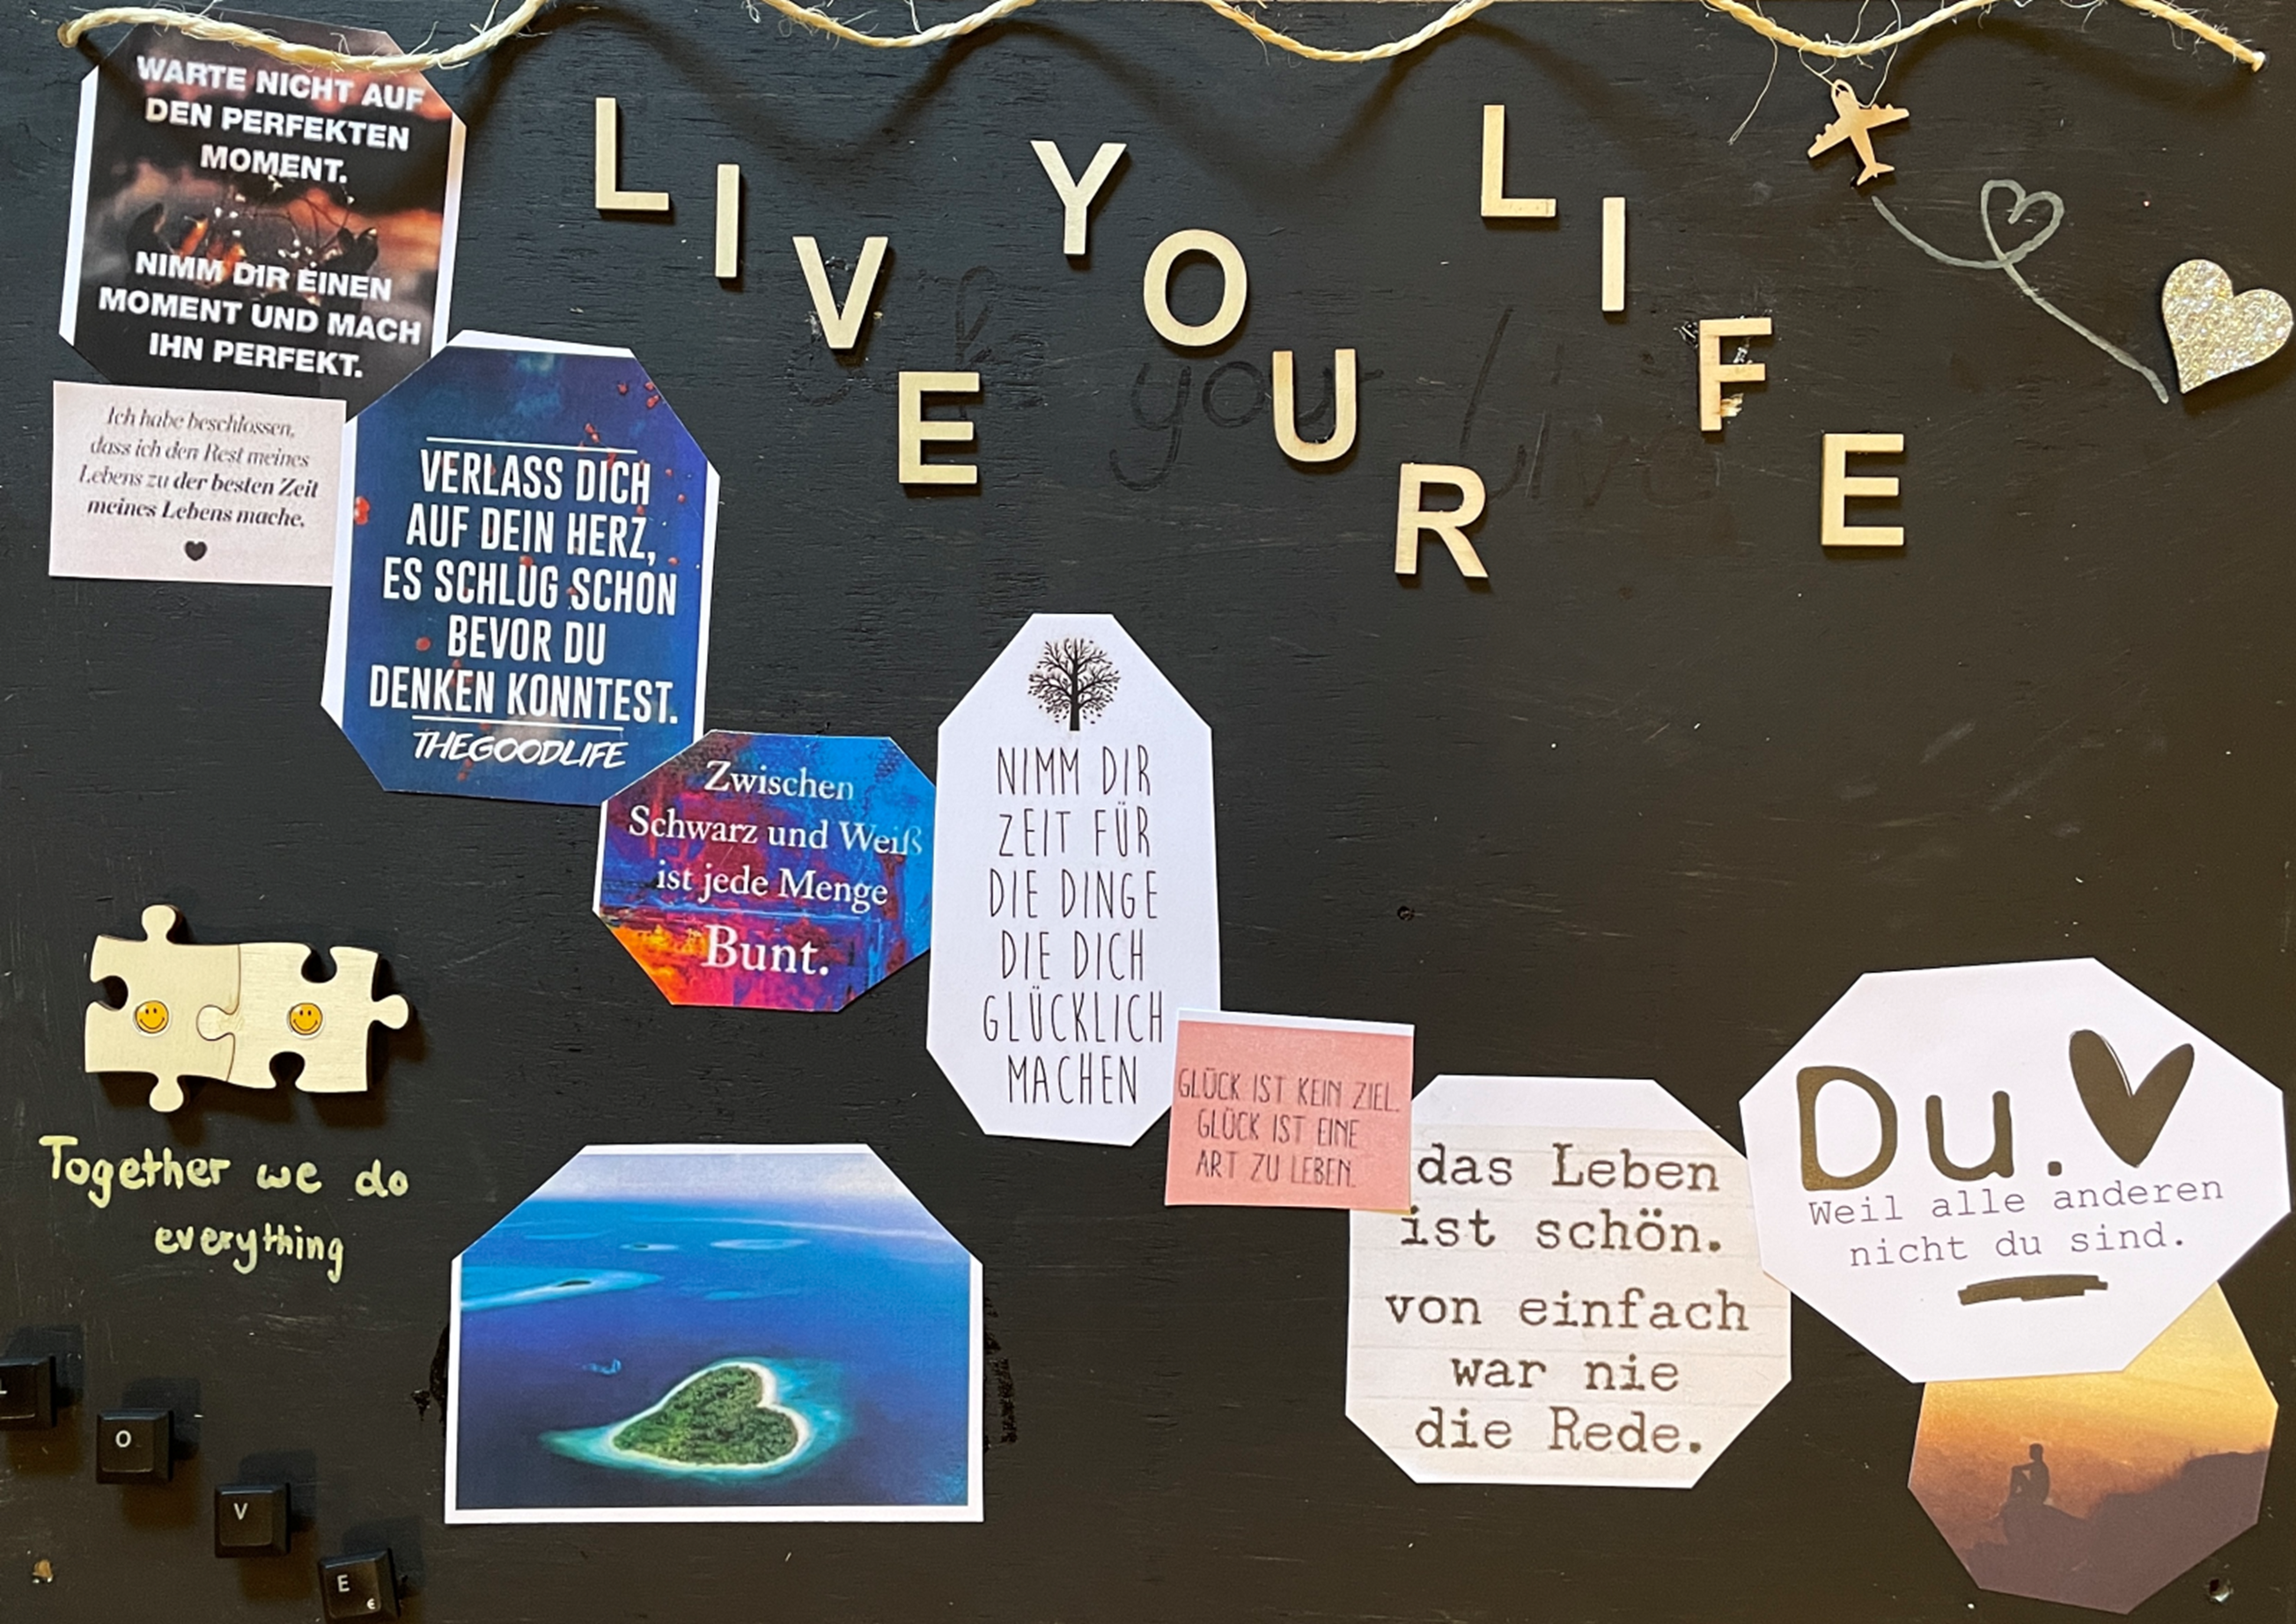 WARTE NICHT AUF
DEN PERFEKTEN
MOMENT.
NIMM DIR EINEN
MOMENT UND MACH
IHN PERFEKT.
LIVE YOUR LIFE
Ich habe beschlossen,
dass ich den Rest meines
Lebens zu der besten Zeit
meines Lebens mache.
VERLASS DICH
AUF DEIN HERZ,
ES SCHLUG SCHON
BEVOR DU
DENKEN KONNTEST.
THEGOODLIFE
Zwischen
Schwarz und Weiß
ist jede Menge
Bunt.
NIMM DIR
ZEIT FÜR
DIE DINGE
DIE DICH
GLÜCKLICH
MACHEN
GLÜCK IST KEIN ZIEL.
GLÜCK IST EINE
ART ZU LEBEN.
das Leben
ist schön.
von einfach
war nie
die Rede.
Du.
Weil alle anderen
nicht du sind.
Together we do
everything
L
O
V
E €